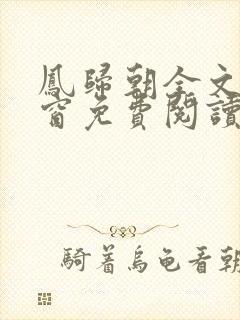 鳳歸朝全文
窗免費閱讀
騎著烏龜看朝